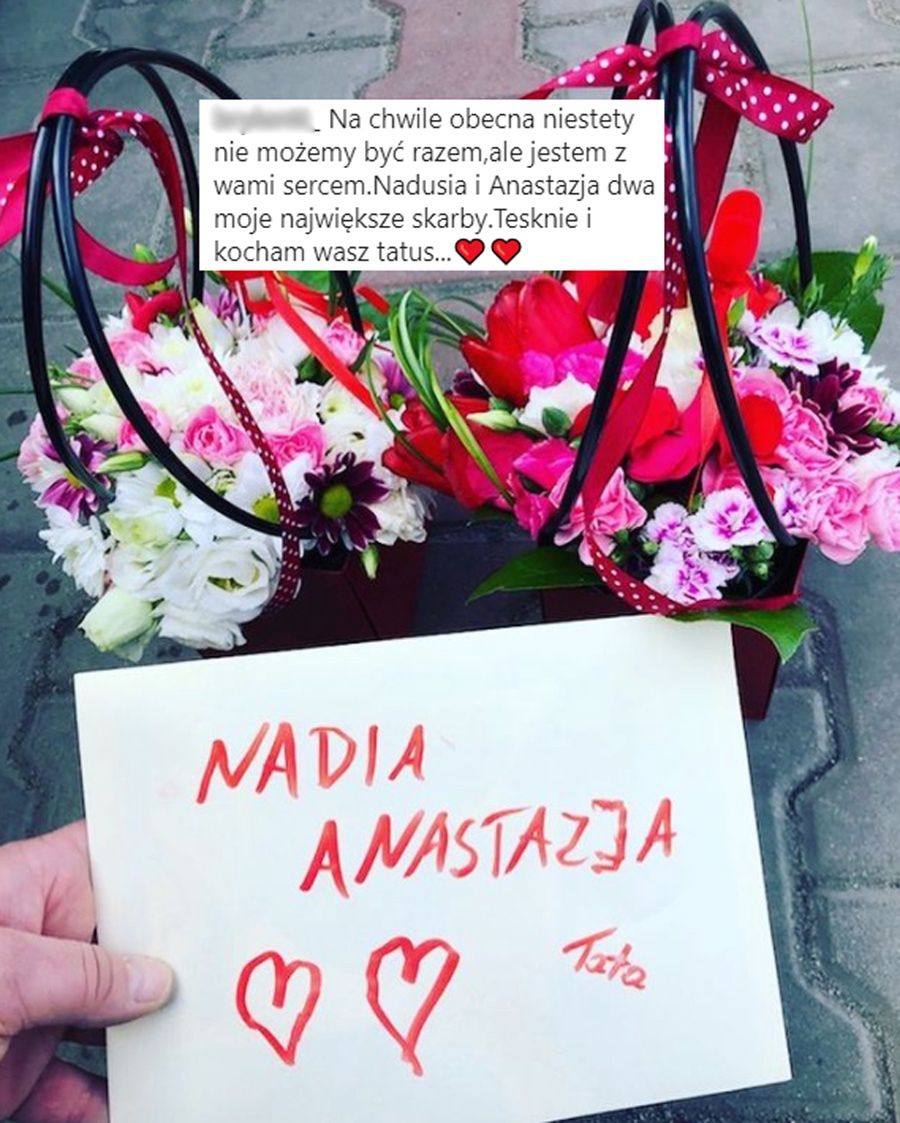 Na chwile obecna niestety
nie możemy być razem,ale jestem z
wami sercem.Nadusia i Anastazja dwa
moje największe skarby.Tesknie i
kocham wasz tatus...❤️❤️
NADIA
ANASTAZJA
Tata